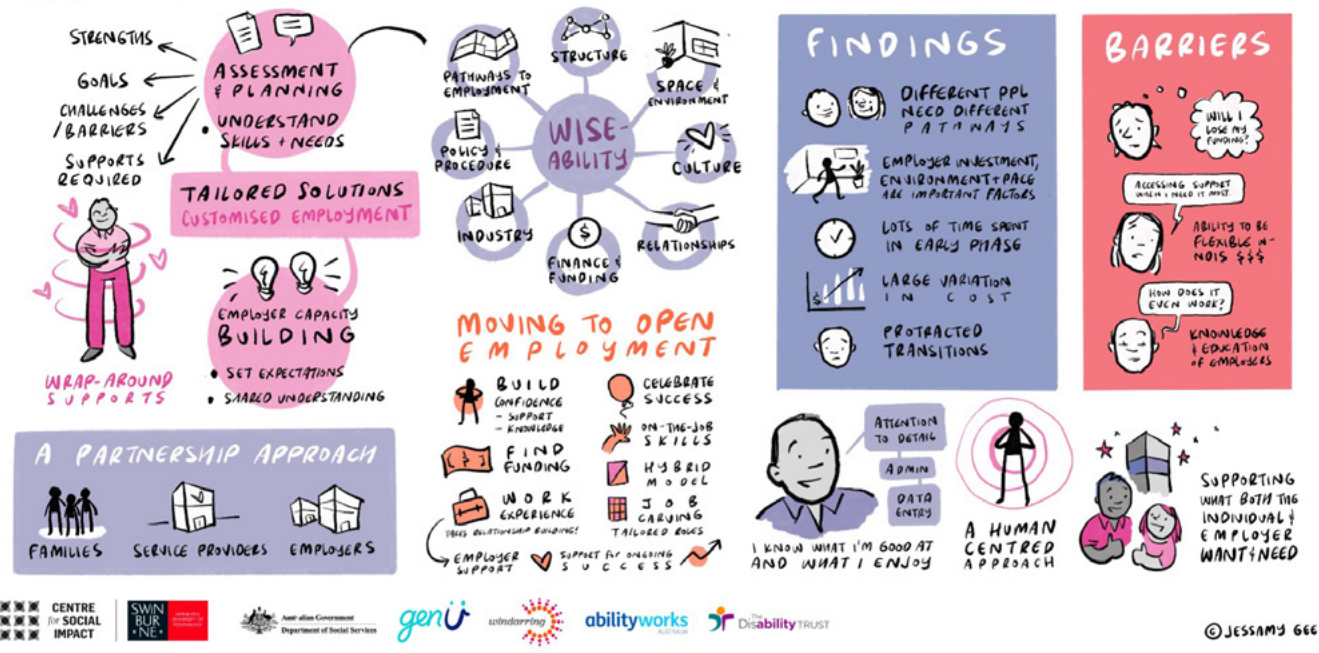 STRENGTHS
GOALS
CHALLENGES
/BARRIERS
SUPPORTS
REQUIRED
ASSESSMENT
& PLANNING
• UNDERSTAND
SKILLS + NEEDS
TAILORED SOLUTIONS
CUSTOMISED EMPLOYMENT
EMPLOYER CAPACITY
BUILDING
• SET EXPECTATIONS
• SHARED UNDERSTANDING
WRAP-AROUND
SUPPORTS
A PARTNERSHIP APPROACH
FAMILIES
SERVICE PROVIDERS
EMPLOYERS
WISE-
ABILITY
STRUCTURE
SPACE &
ENVIRONMENT
CULTURE
RELATIONSHIPS
FINANCE &
FUNDING
INDUSTRY
POLICY &
PROCEDURE
PATHWAYS TO
EMPLOYMENT
MOVING TO OPEN
EMPLOYMENT
BUILD
CONFIDENCE
- SUPPORT
- KNOWLEDGE
FIND
FUNDING
WORK
EXPERIENCE
TAKES RELATIONSHIP BUILDING!
EMPLOYER
SUPPORT
CELEBRATE
SUCCESS
ON-THE-JOB
SKILLS
HYBRID
MODEL
JOB
CARVING
TAILORED ROLES
SUPPORT FOR ONGOING
SUCCESS
FINDINGS
DIFFERENT PPL
NEED DIFFERENT
PATHWAYS
EMPLOYER INVESTMENT,
ENVIRONMENT + PACE
ARE IMPORTANT FACTORS
LOTS OF TIME SPENT
IN EARLY PHASE
$
LARGE VARIATION
IN COST
PROTRACTED
TRANSITIONS
BARRIERS
WILL I
LOSE MY
FUNDING?
ACCESSING SUPPORT
WHEN I NEED IT MOST.
ABILITY TO BE
FLEXIBLE IN
NDIS $$$
HOW DOES IT
EVEN WORK?
KNOWLEDGE
& EDUCATION
OF EMPLOYERS
ATTENTION
TO DETAIL
ADMIN
DATA
ENTRY
I KNOW WHAT I'M GOOD AT
AND WHAT I ENJOY
A HUMAN
CENTRED
APPROACH
SUPPORTING
WHAT BOTH THE
INDIVIDUAL &
EMPLOYER
WANT & NEED
CENTRE
for SOCIAL
IMPACT
SWIN
BUR
•NE•
Australian Government
Department of Social Services
genU
windarring
abilityworks
AUSTRALIA
The
Disability TRUST
© JESSAMY GEE